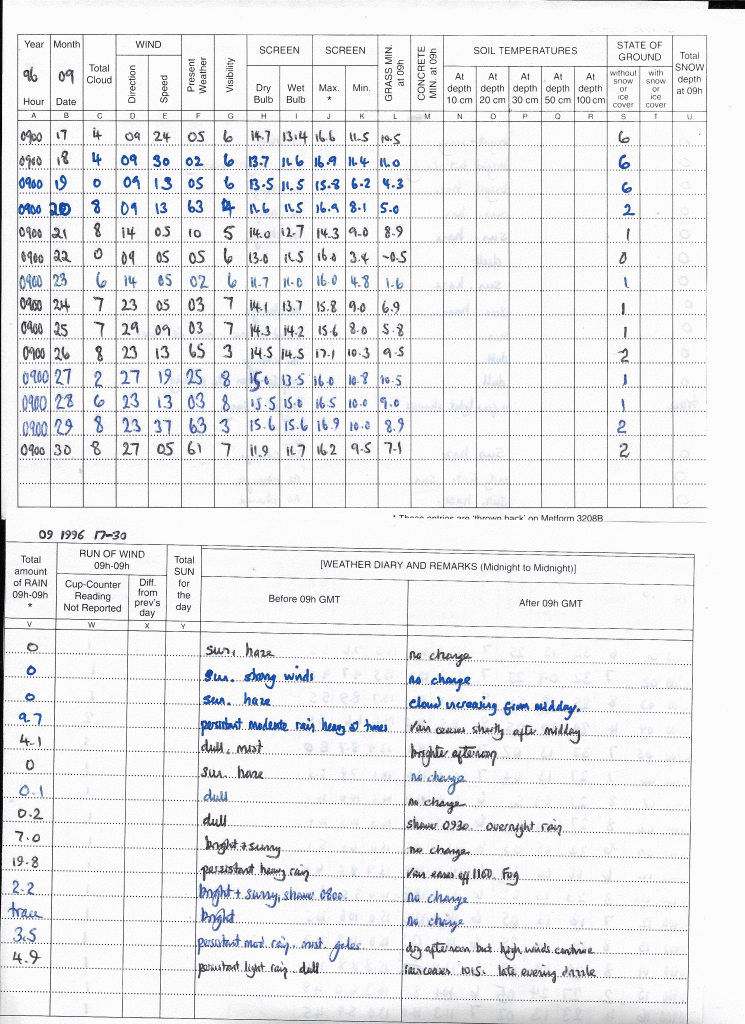 Year Month Total Cloud WIND Present Weather Visibility SCREEN SCREEN GRASS MIN. at 09h CONCRETE MIN. at 09h SOIL TEMPERATURES STATE OF GROUND Total SNOW depth at 09h
96 09 Direction Speed Dry Bulb Wet Bulb Max. * Min. At depth 10 cm At depth 20 cm At depth 30 cm At depth 50 cm At depth 100 cm without snow or ice cover with snow or ice cover
Hour Date
A B C D E F G H I J K L M N O P Q R S T U
0900 17 4 09 24 05 6 14.7 13.4 16.6 11.5 10.5 6
0900 18 4 09 30 02 6 13.7 11.6 16.9 11.4 11.0 6
0900 19 0 09 13 05 6 13.5 11.5 15.8 6.2 4.3 6
0900 20 8 09 13 63 4 11.6 11.5 16.9 8.1 5.0 2
0900 21 8 14 05 10 5 14.0 12.7 14.3 9.0 8.9 1
0900 22 0 09 05 05 6 13.0 11.5 16.0 3.4 -0.5 0
0900 23 6 14 05 02 6 11.7 11.0 16.0 4.8 1.6 1
0900 24 7 23 05 03 7 14.1 13.7 15.8 9.0 6.9 1
0900 25 7 29 09 03 7 14.3 14.2 15.6 8.0 5.8 1
0900 26 8 23 13 65 3 14.5 14.5 17.1 10.3 9.5 2
0900 27 2 27 19 25 8 15.0 13.5 16.0 10.8 10.5 1
0900 28 6 23 13 03 8 15.5 15.0 16.5 10.0 9.0 1
0900 29 8 23 37 63 3 15.6 15.6 16.9 10.0 8.9 2
0900 30 8 27 05 61 7 11.9 11.7 16.2 9.5 7.1 2
* These entries are 'thrown back' on Metform 3208B
09 1996 17-30
Total amount of RAIN 09h-09h * RUN OF WIND 09h-09h Total SUN for the day [WEATHER DIARY AND REMARKS (Midnight to Midnight)]
Cup-Counter Reading Not Reported Diff. from prev's day Before 09h GMT After 09h GMT
V W X Y
0 sun, haze no change
0 sun. strong winds no change
0 sun. haze cloud increasing from midday.
9.7 persistent moderate rain heavy at times rain ceases shortly after midday
4.1 dull, mist brighter afternoon
0 sun haze no change
0.1 dull no change
0.2 dull shower 0930 overnight rain
7.0 bright + sunny no change
19.8 persistent heavy rain rain eases off 1100. Fog
2.2 bright + sunny, shower 0800. no change
trace bright no change
3.5 persistent mod. rain. mist. gales. dry afternoon but high winds continue
4.9 persistent light rain. dull rain ceases 1015. late evening drizzle